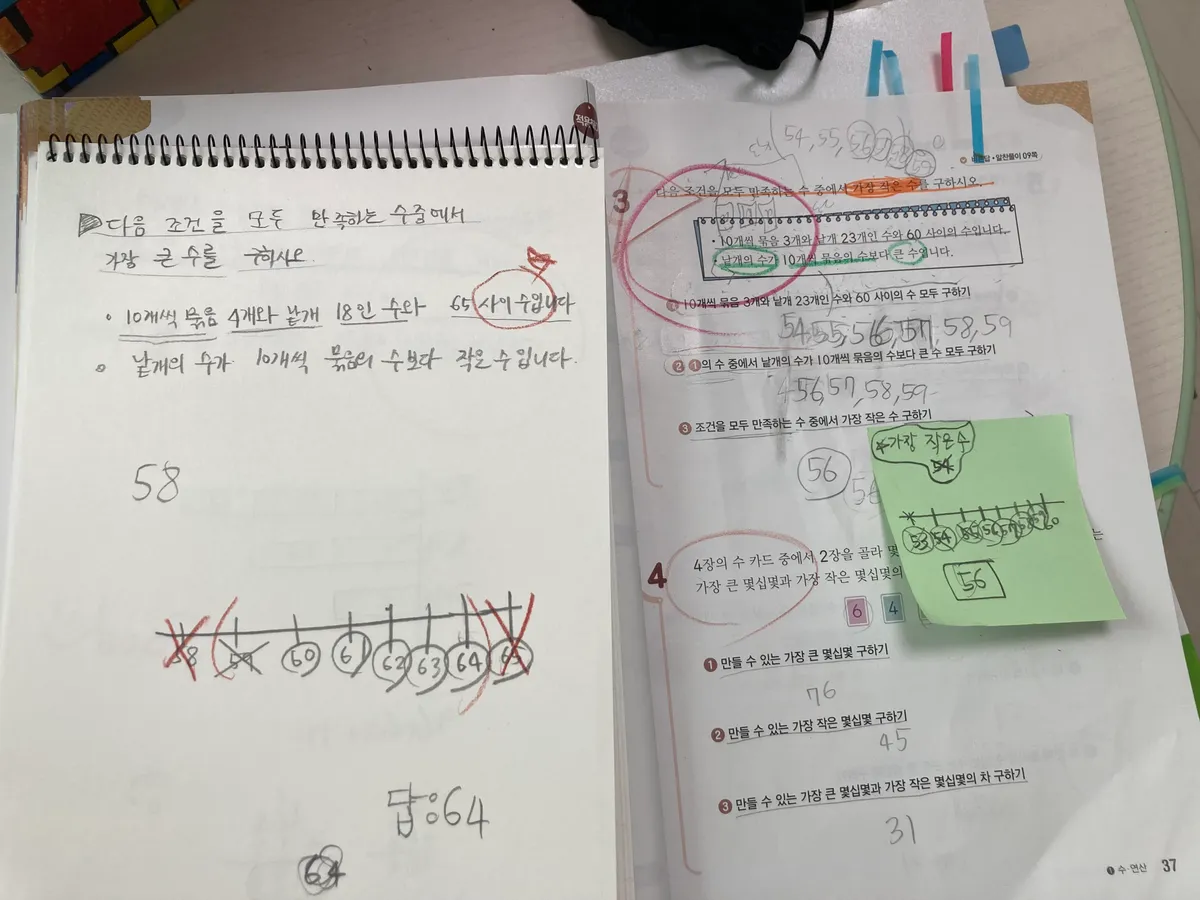 다음 조건을 모두 만족하는 수중에서
가장 큰 수를 구하시오.
• 10개씩 묶음 4개와 낱개 18인 수와 65 사이 수입니다
• 낱개의 수가 10개씩 묶음의 수보다 작은 수입니다.
58
58 59 60 61 62 63 64 65
답:64
64
54, 55, 56
알찬풀이 09쪽
3
다음 조건을 모두 만족하는 수 중에서 가장 작은 수를 구하시오.
• 10개씩 묶음 3개와 낱개 23개인 수와 60 사이의 수입니다.
• 낱개의 수가 10개씩 묶음의 수보다 큰 수입니다.
1 10개씩 묶음 3개와 낱개 23개인 수와 60 사이의 수 모두 구하기
54, 55, 56, 57, 58, 59
2 1의 수 중에서 낱개의 수가 10개씩 묶음의 수보다 큰 수 모두 구하기
56, 57, 58, 59
3 조건을 모두 만족하는 수 중에서 가장 작은 수 구하기
56
*가장 작은수
54
53 54 55 56 57 58 59 60
56
4
4장의 수 카드 중에서 2장을 골라 몇
가장 큰 몇십몇과 가장 작은 몇십몇의
6 4
1 만들 수 있는 가장 큰 몇십몇 구하기
76
2 만들 수 있는 가장 작은 몇십몇 구하기
45
3 만들 수 있는 가장 큰 몇십몇과 가장 작은 몇십몇의 차 구하기
31
1 수·연산 37